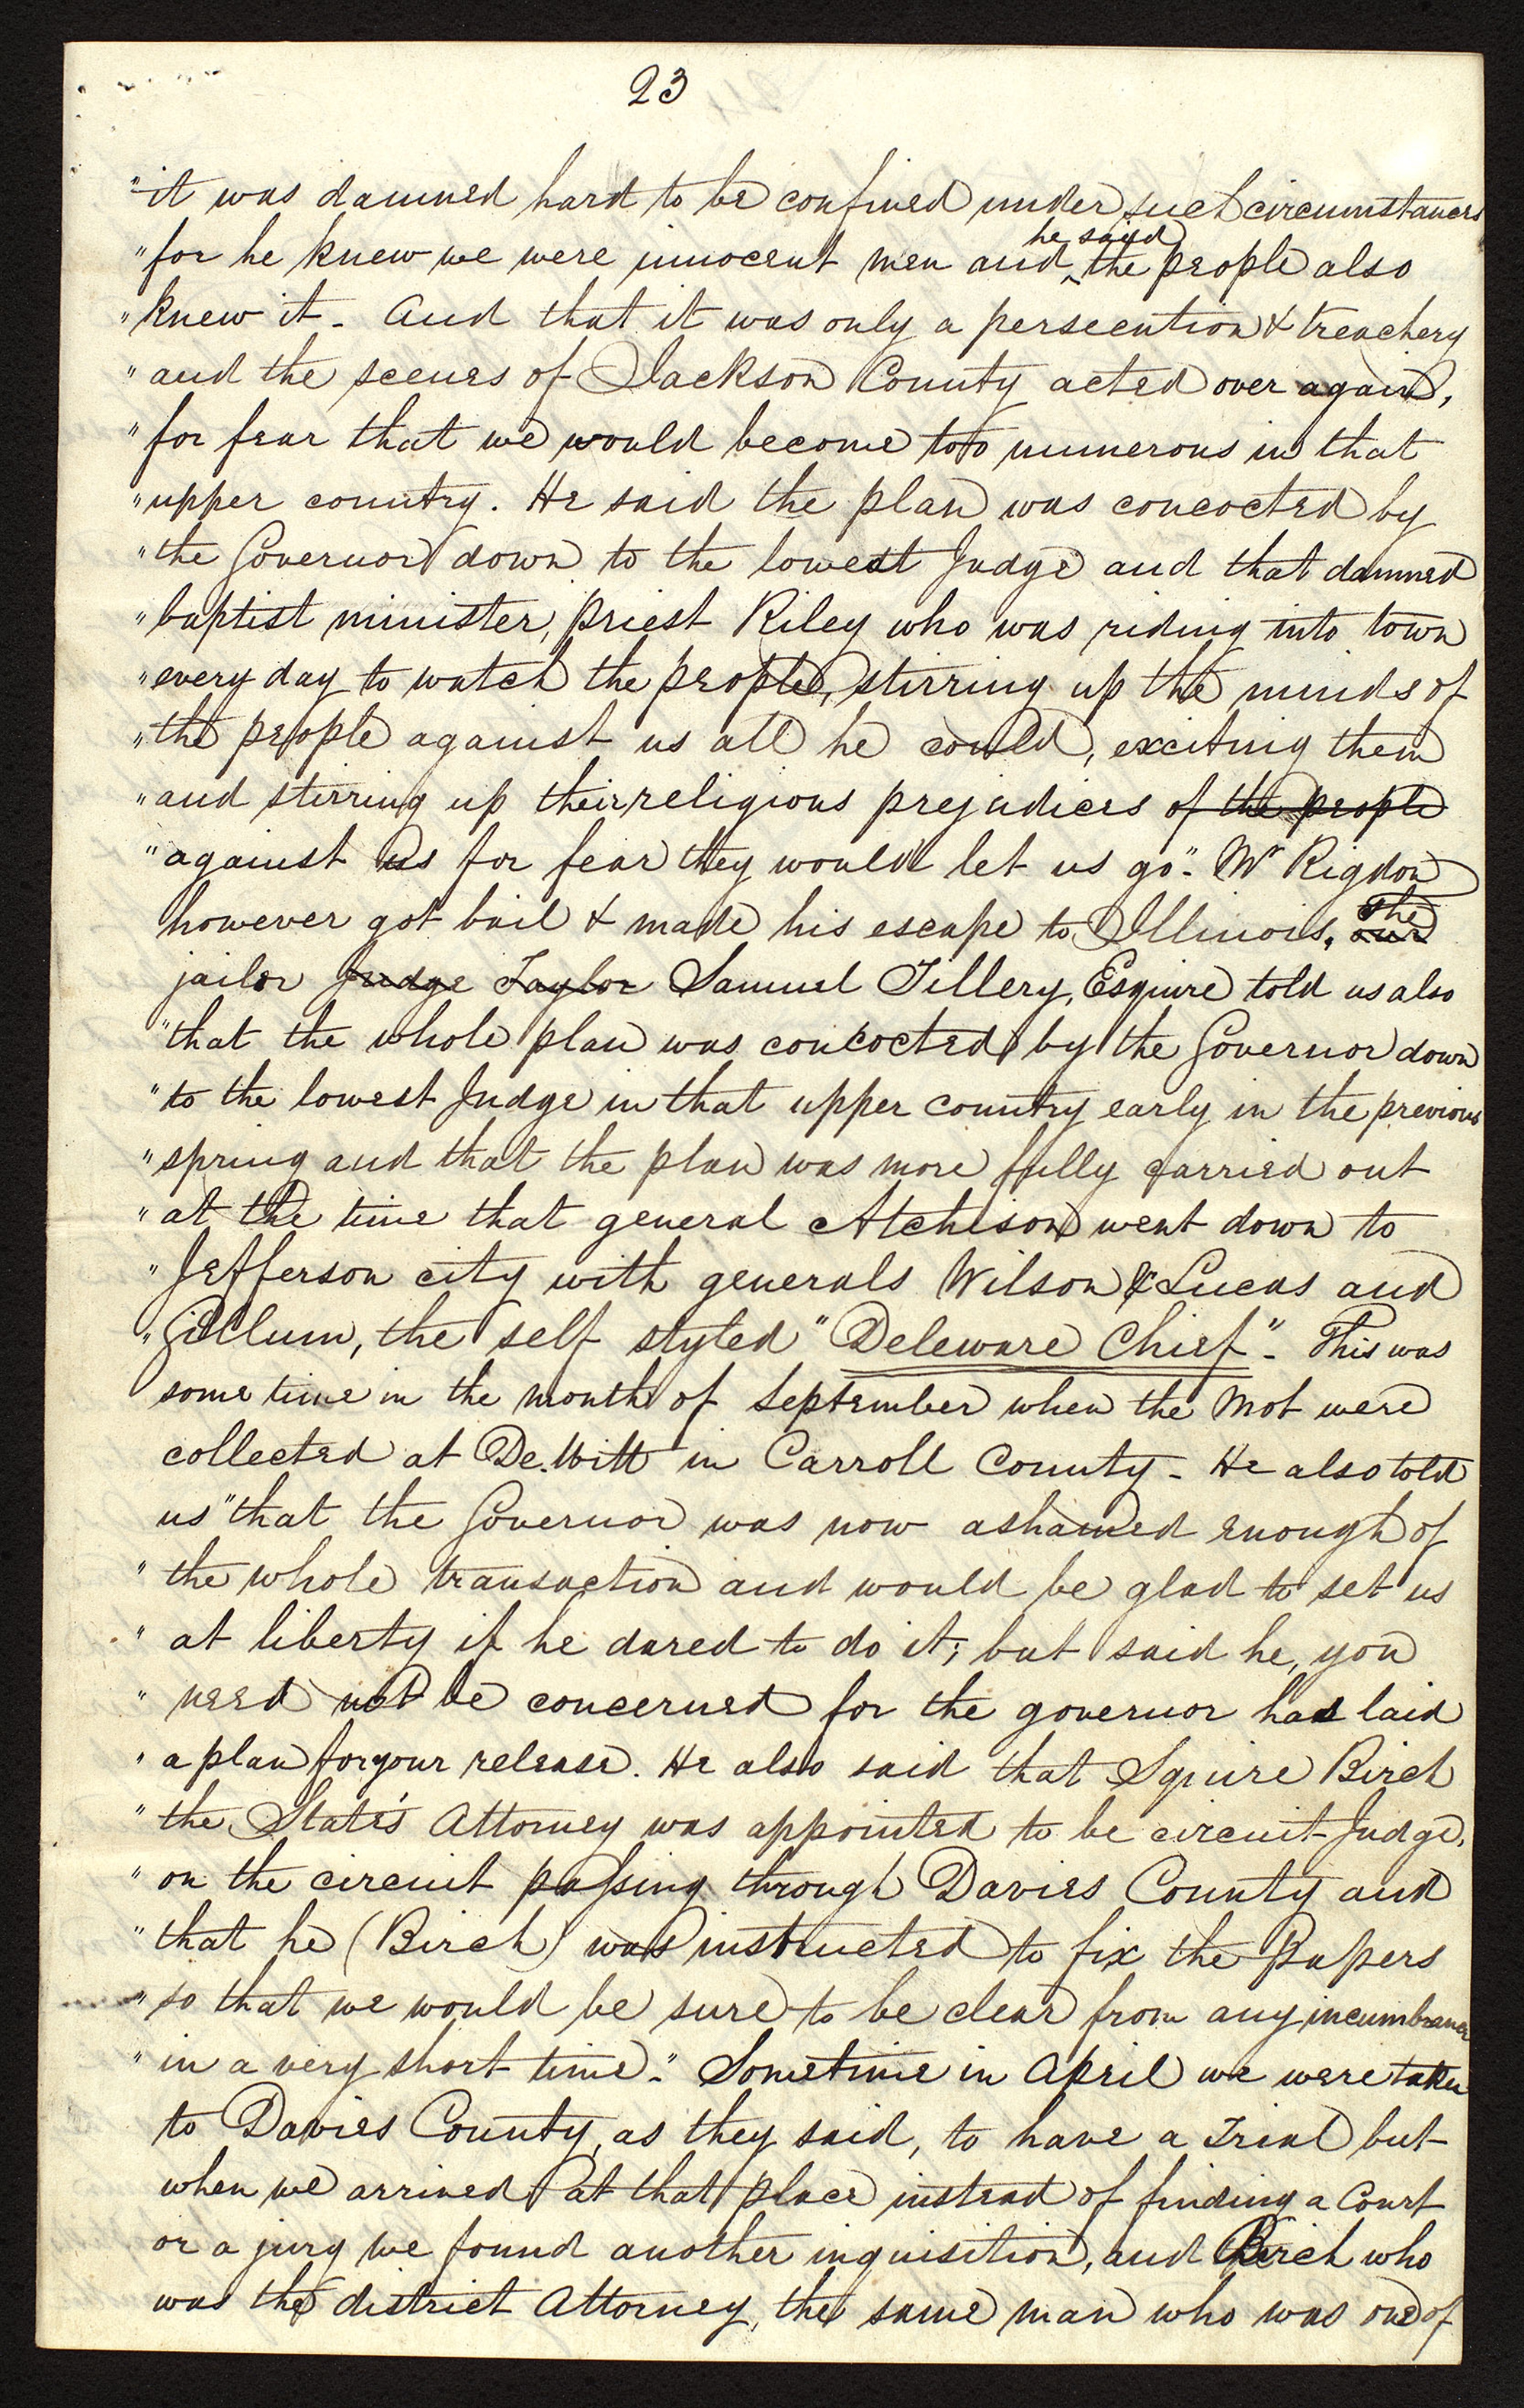 23
"it was damned hard to be confined under such circumstances
"for he knew we were innocent men and ^he said the people also
"knew it - And that it was only a persecution & treachery
"and the scenes of Jackson County acted over again,
"for fear that we would become too numerous in that
"upper country. He said the plan was concocted by
"the Governor down to the lowest Judge and that damned
"baptist minister, priest Riley who was riding into town
"every day to watch the people, stirring up the minds of
"the people against us all he could, exciting them
"and stirring up their religious prejudices of the people
"against us for fear they would let us go". Mr Rigdon
however got bail & made his escape to Illinois. our The
jailor Judge Taylor Samuel Tillery, Esquire told us also
"that the whole plan was concocted by the Governor down
"to the lowest Judge in that upper country early in the previous
"spring and that the plan was more fully carried out
"at the time that general Atchison went down to
"Jefferson city with generals Wilson & Lucas and
"Gillum, the self styled "Deleware Chief". This was
some time in the month of September when the mob were
collected at De.Witt in Carroll County - He also told
us "that the Governor was now ashamed enough of
"the whole transaction and would be glad to set us
"at liberty if he dared to do it; but said he, you
"need not be concerned for the governor has laid
"a plan for your release. He also said that Squire Birch
"the State's Attorney was appointed to be circuit Judge,
"on the circuit passing through Davies County and
"that he (Birch) was instructed to fix the Papers
"so that we would be sure to be clear from any incumbrance
"in a very short time". Sometime in April we were taken
to Davies County, as they said, to have a Trial but
when we arrived at that place instead of finding a Court
or a jury we found another inquisition, and Birch who
was the district Attorney, the same man who was one of